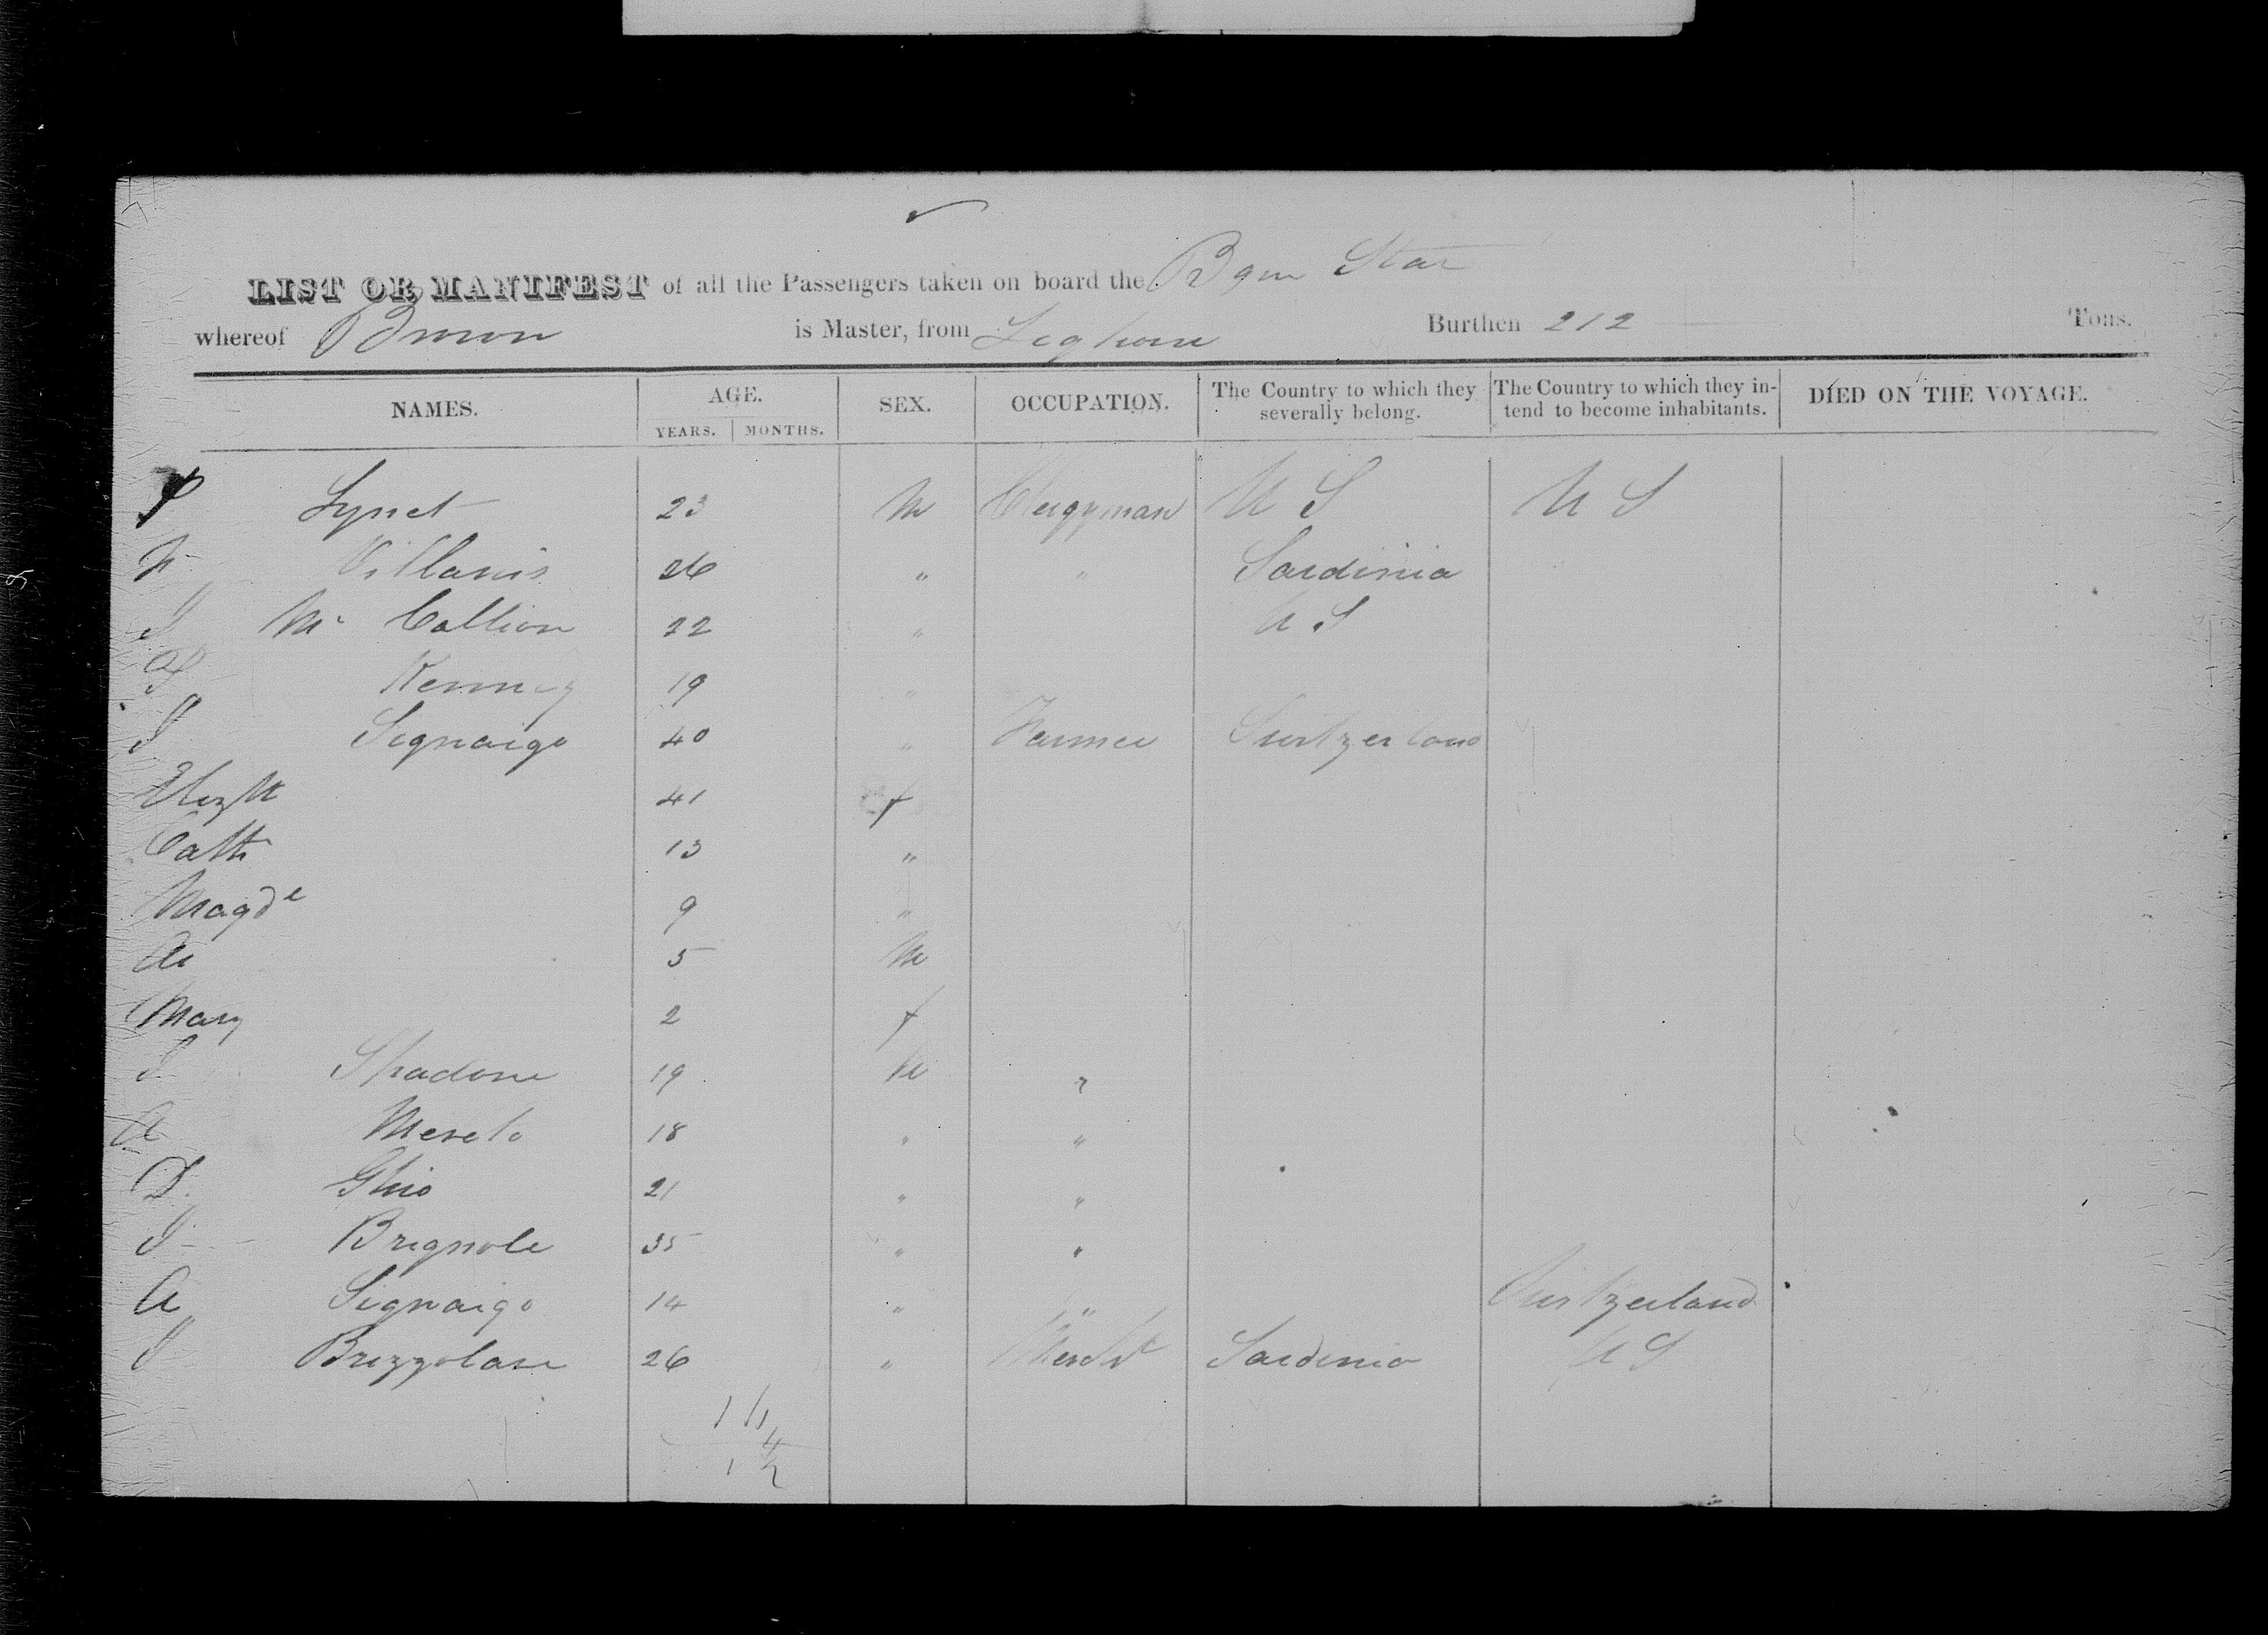 LIST OR MANIFEST of all the Passengers taken on board the Bgm Star
whereof Brown is Master, from Leghorn Burthen 212 Tons.
NAMES. AGE. YEARS. MONTHS. SEX. OCCUPATION. The Country to which they severally belong. The Country to which they intend to become inhabitants. DIED ON THE VOYAGE.
P Lynet 23 M Clergyman U S U S
N Villanis 26 " " Sardinia
J Mc Callion 22 " U S
P Kenney 19 "
J Signaigo 40 " Farmer Switzerland
Elizth 41 f
Cath 13 "
Magde 9 "
An 5 M
Mary 2 f
J Spadone 19 M "
A Merelo 18 " "
D. Ghio 21 " "
J Brignole 35 " "
A Signaigo 14 " " Switzerland
J Brizzolare 26 " Mercht Sardinia U S